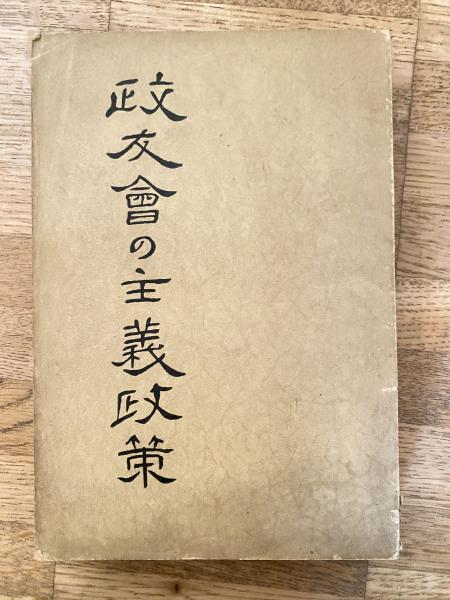 政友會の主義政策